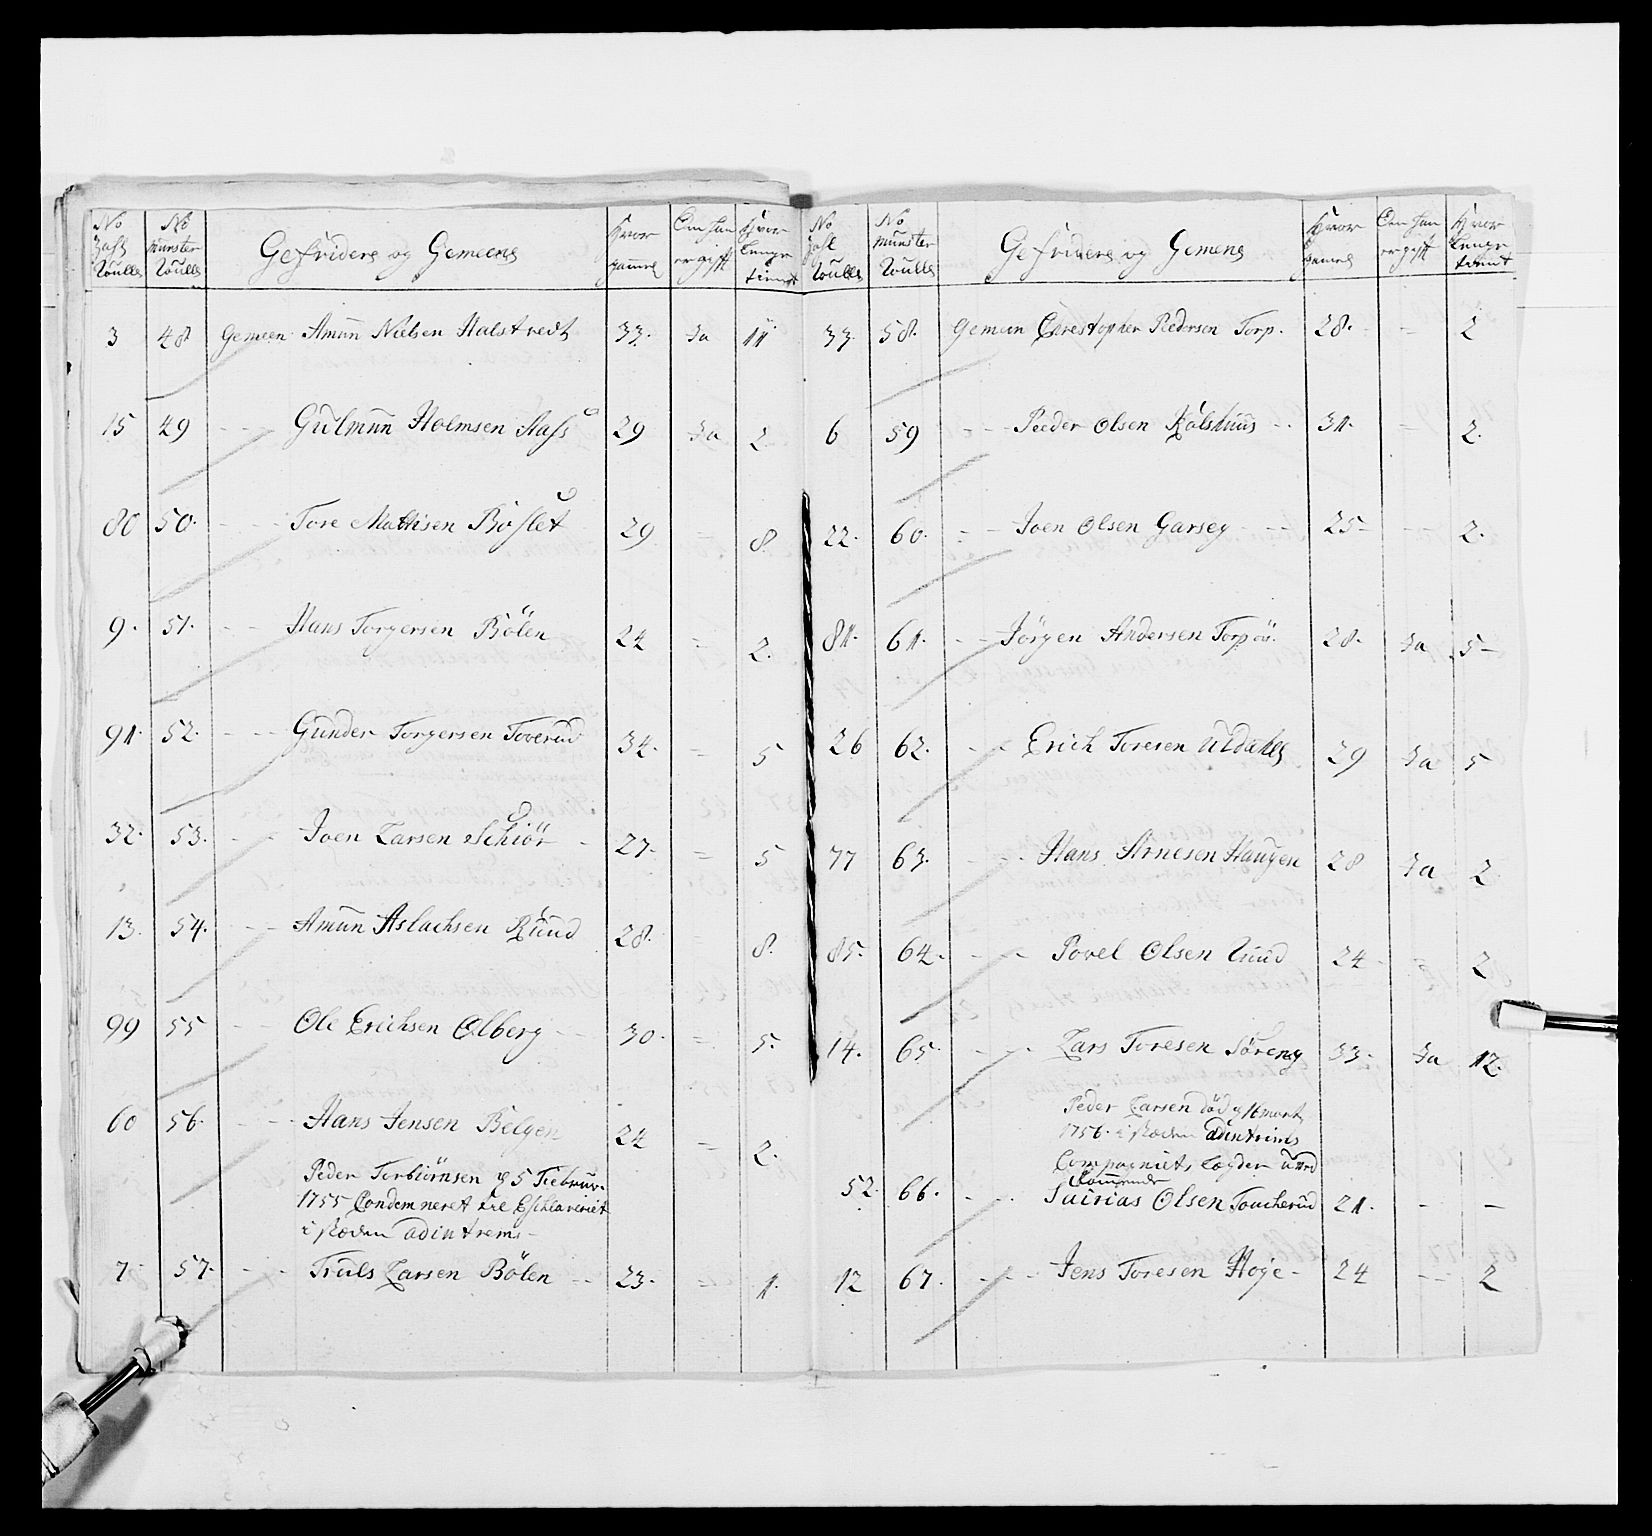 No Zahl Roulle | No Munster Roulle | Gefridere og Gemeene | Hvor gammel | Om han er gift | Hvor lenge tient
3 48 Gemeen Amun Nielsen Halstvedt 33. Ja 11
15 49 - - Gulmun Holmsen Aass 29 Ja 2
80 50. - - Tore Mattisen Böflet 29 = 8
9. 51. - - Hans Torgersen Bölen 24 = 2.
91. 52. - - Gunder Torgersen Toverud 34. - 5
32. 53. - - Joen Larsen Schiör - 27. = 5
13. 54. - - Amun Aslachsen Ruud 28. - 8.
99 55 - - Ole Erichsen Olberg - 30. = 5.
60 56. - - Hans Jensen Belgen 24 = 2.
Peder Torbiörnsen d 5 Februar.
1755 Condemneret til Eschlaveriet
i steden adintrems -
7. 57. - - Truls Larsen Bölen - - 23. = 1.
No Zahl Roulle | No Munster Roulle | Gefridere og Gemene | Hvor gamel | Om han er gift | Hvor lenge tient
33. 58. Gemeen Christopher Pedersen Torp. 28. - 2
6 59 - - Peder Olsen Kolshuus - 31. - 2.
22. 60. - - Joen Olsen Garseg - - 25 - - 2.
81. 61. - - Jörgen Andersen Torpöe. 28. Ja 5 -
26 62. - - Erich Toresen Uldahls 29 Ja 5
77 63. - - Hans Arnesen Haugen 28 Ja 2
85. 64. - - Povel Olsen Lund 24 = 2
14. 65. - - Lars Toresen Söreng 33. Ja 12.
Peder Larsen död d 16 mart
1756. i steden adintrims
Compagniets lægder
52. 66. - - Olsen Toucherud 21. - -
12 67. - - Jens Toresen Hoje - 24 - - 2